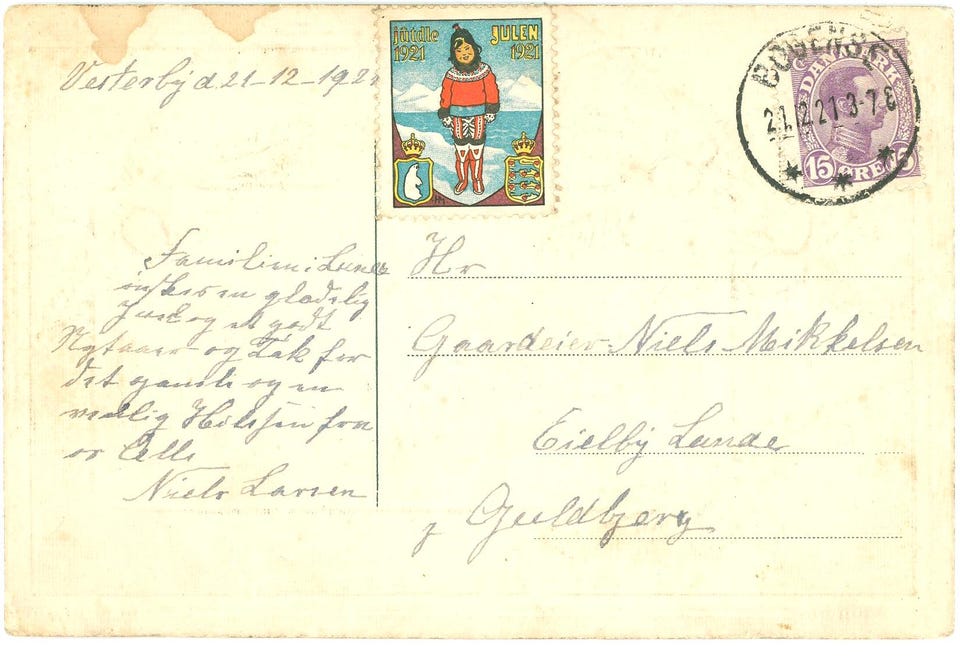 Vesterby d 21-12-1921
juudle
1921
JULEN
1921
BOGENSE
21.12.21 3-7 E
DANMARK
15 ØRE 15
Familien i Lunde
ønskes en glædelig
Juul og et godt
Nytaaer og Tak for
det gamle og en
venlig Hilsen fra
os Alle
Niels Larsen
Hr
Gaardeier Niels Mikkelsen
Eielby Lunde
Guldbjerg